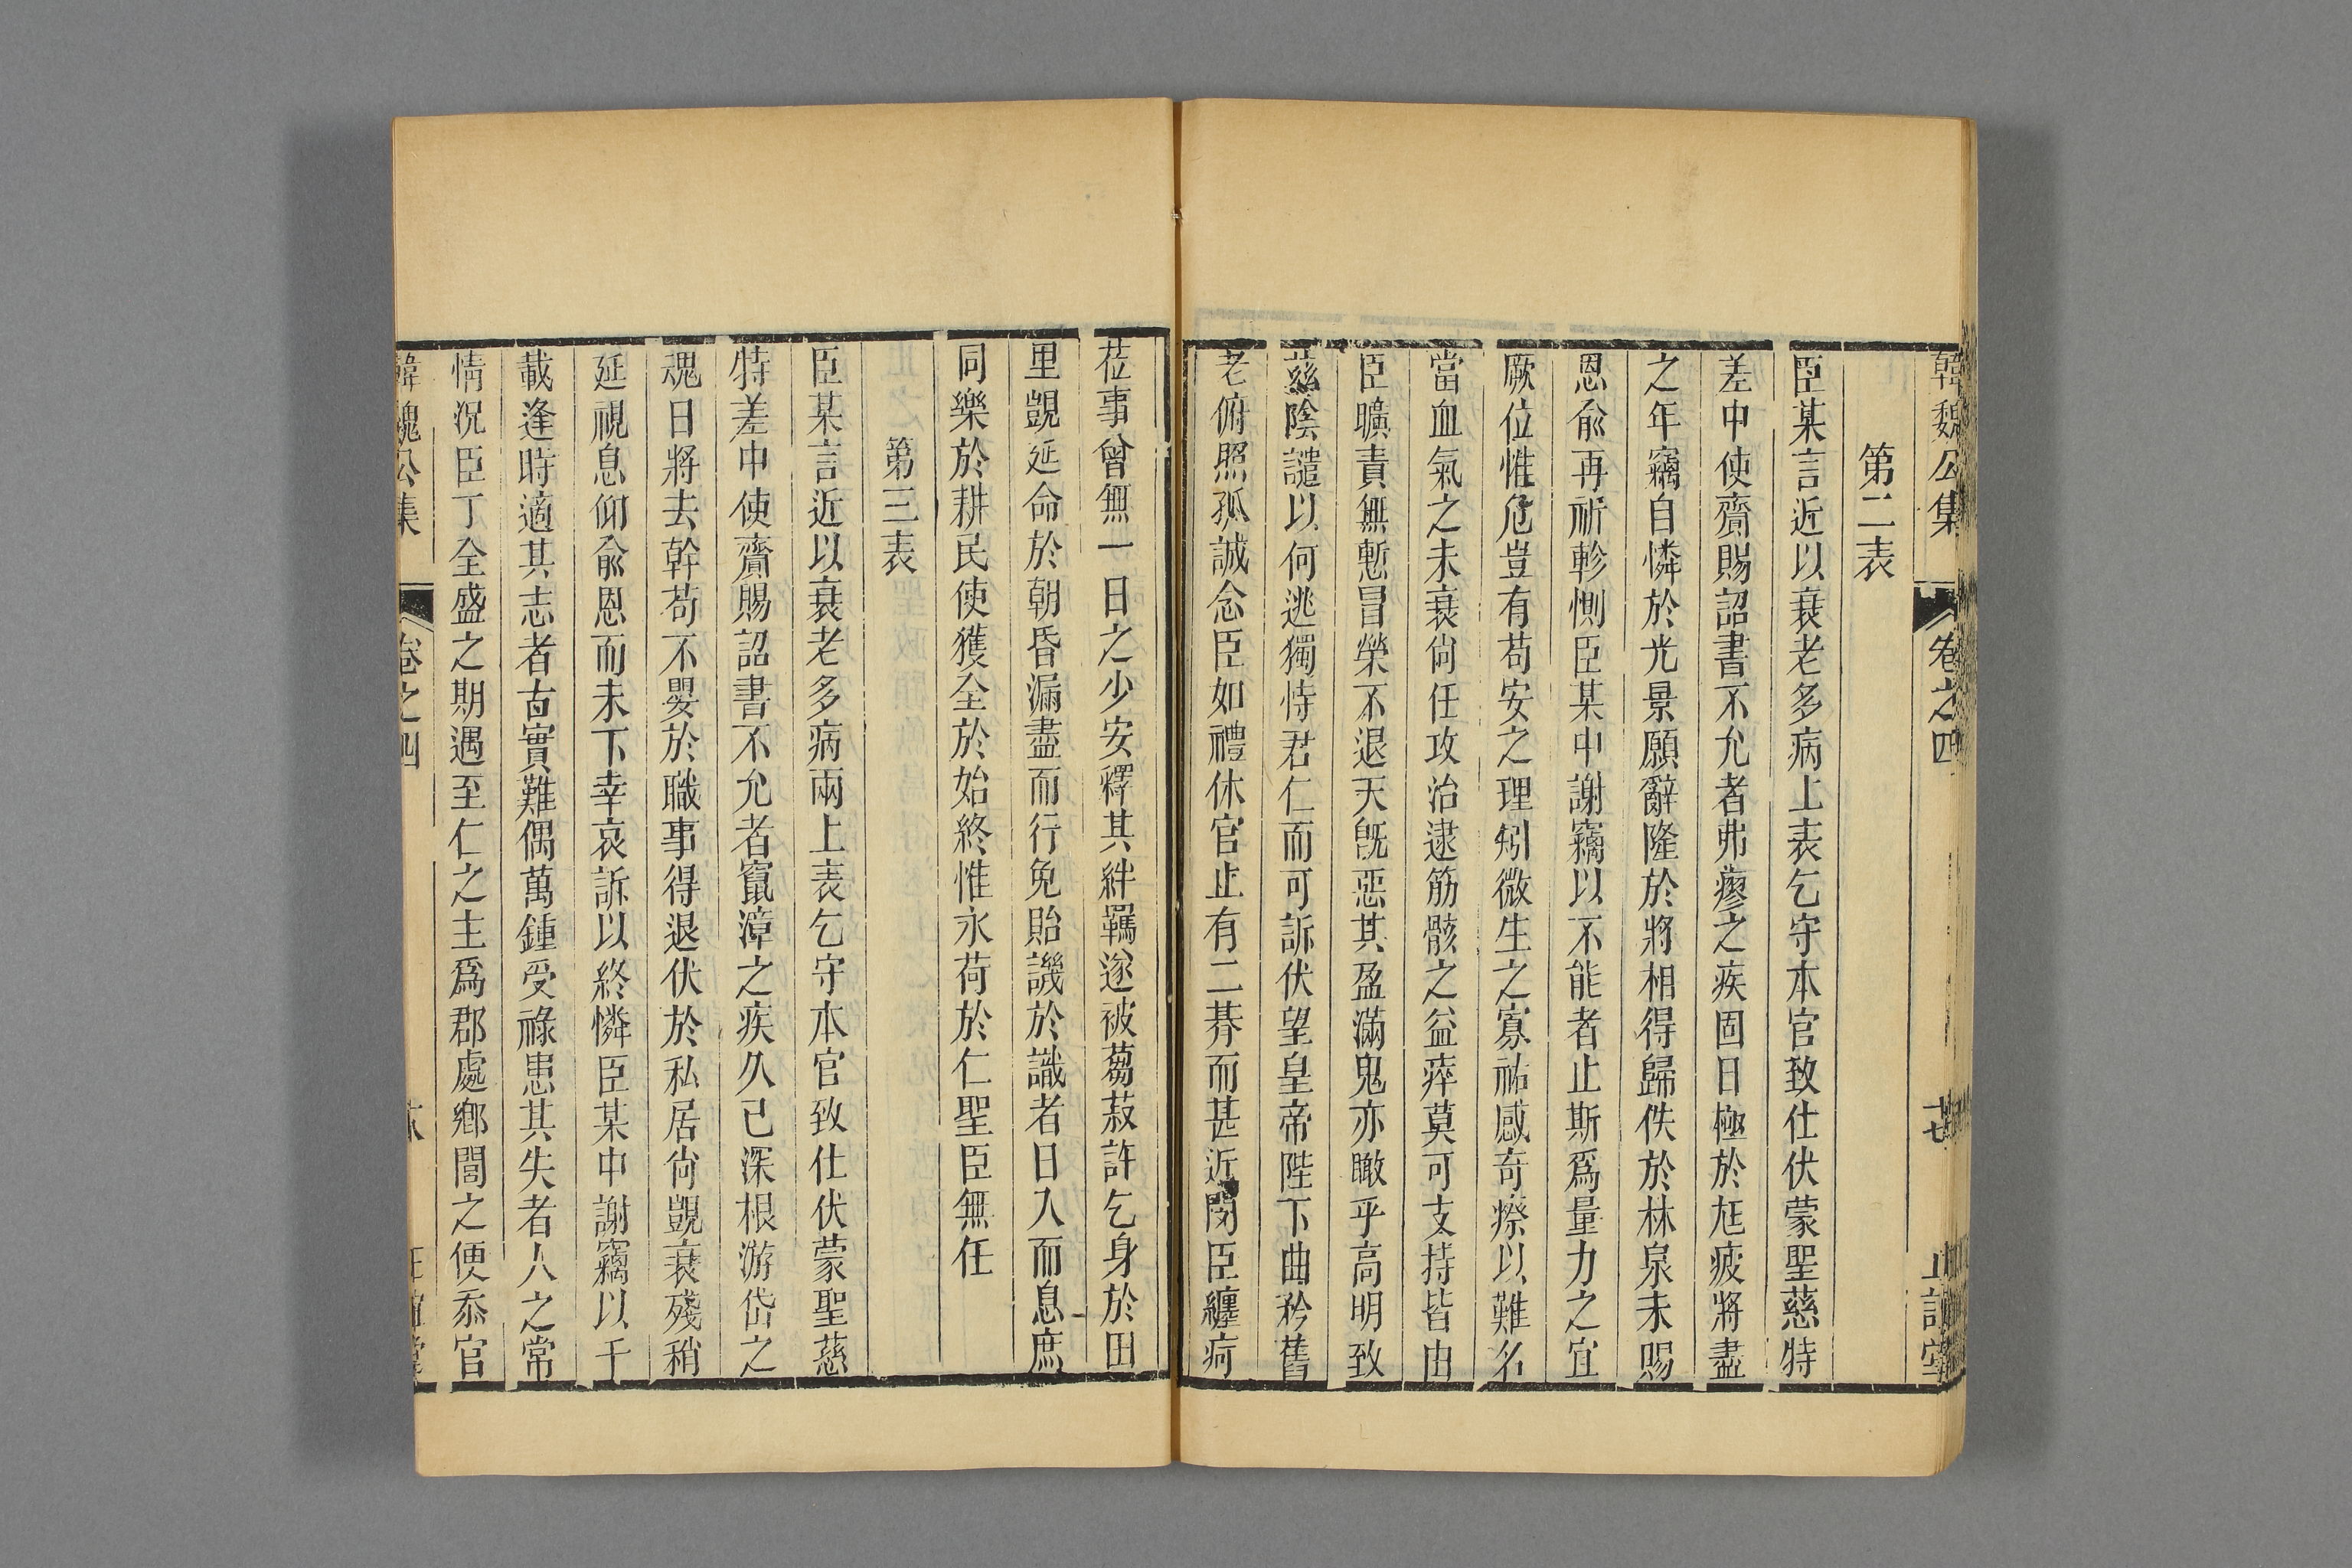 韓魏公集 卷之四
第二表
臣某言近以衰老多病上表乞守本官致仕伏蒙聖慈特
差中使齎賜詔書不允者弗瘳之疾固日極於尪疲將盡
之年竊自憐於光景願辭隆於將相得歸佚於林泉未賜
恩俞再祈軫惻臣某中謝竊以不能者止斯爲量力之宜
厥位惟危豈有苟安之理矧微生之寡祐感奇瘵以難名
當血氣之未衰尙任攻治逮筋骸之益瘁莫可支持皆由
臣曠責無慙冒榮不退天旣惡其盈滿鬼亦瞰乎高明致
茲陰譴以何逃獨恃君仁而可訴伏望皇帝陛下曲矜舊
老俯照孤誠念臣如禮休官止有二朞而甚近閔臣纏疴
莅事曾無一日之少安釋其絆羈遂被蒭菽許乞身於田
里覬延命於朝昏漏盡而行免貽譏於識者日入而息庶
同樂於耕民使獲全於始終惟永荷於仁聖臣無任
第三表
臣某言近以衰老多病兩上表乞守本官致仕伏蒙聖慈
特差中使齎賜詔書不允者竄漳之疾久已深根游岱之
魂日將去幹苟不嬰於職事得退伏於私居尙覬衰殘稍
延視息仰俞恩而未下幸哀訴以終憐臣某中謝竊以千
載逢時適其志者古實難偶萬鍾受祿患其失者人之常
情況臣丁全盛之期遇至仁之主爲郡處鄕閭之便忝官
韓魏公集 卷之四